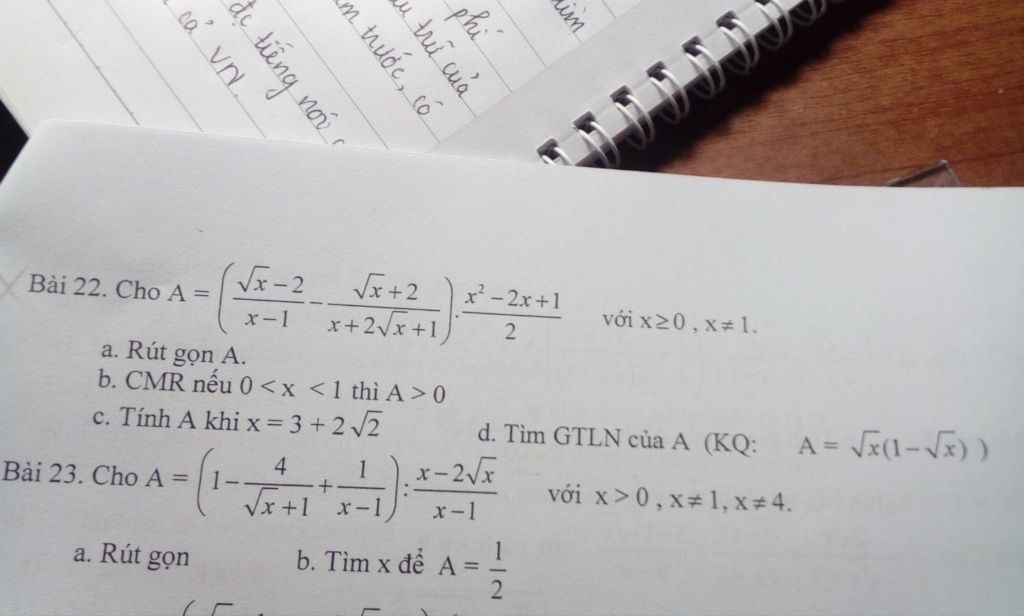 cả VN.
đc tiếng nói
m trước, có
trí của
phí
Bài 22. Cho A = (\frac{\sqrt{x}-2}{x-1} - \frac{\sqrt{x}+2}{x+2\sqrt{x}+1}) . \frac{x^2-2x+1}{2} với x≥0 , x≠1.
a. Rút gọn A.
b. CMR nếu 0 < x < 1 thì A > 0
c. Tính A khi x = 3 + 2√2 d. Tìm GTLN của A (KQ: A = √x(1−√x) )
Bài 23. Cho A = (1 - \frac{4}{\sqrt{x}+1} + \frac{1}{x-1}) : \frac{x-2\sqrt{x}}{x-1} với x > 0 , x≠1, x≠4.
a. Rút gọn b. Tìm x để A = \frac{1}{2}